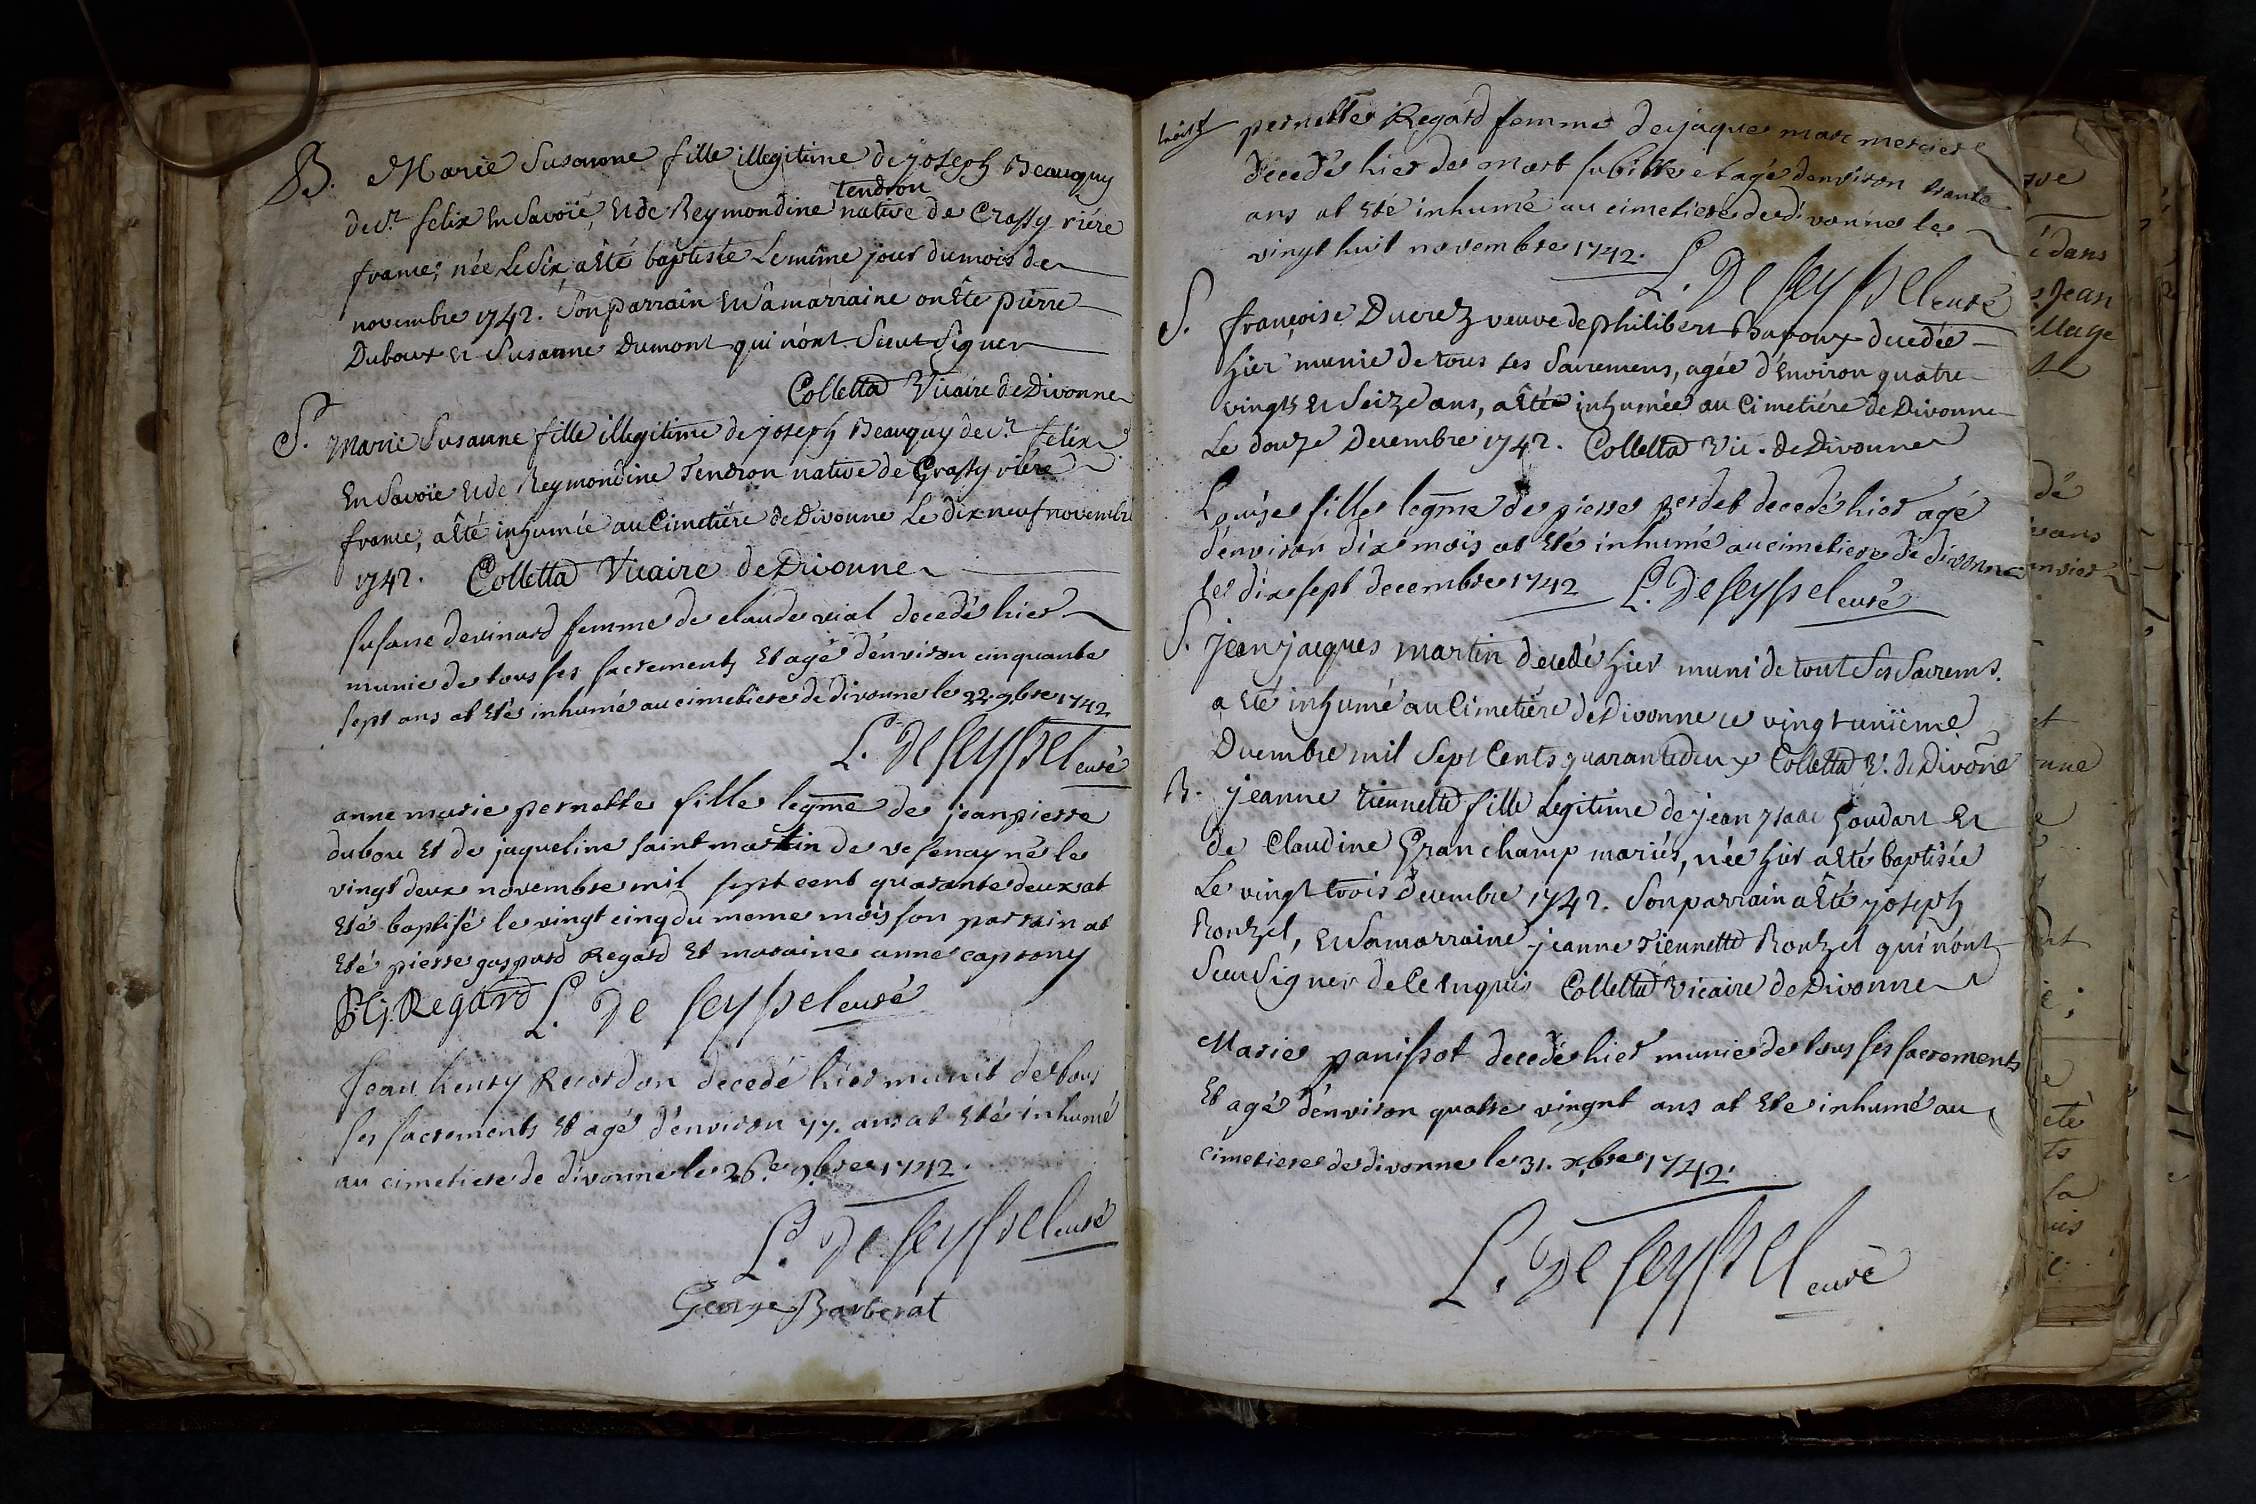 B. Marie Susanne fille illegitime de joseph Beauquy
de St. felix en Savoïe, et de Reymondine Tendron native de Crassy riére
france, née le six a été baptisée le même jour du mois de
novembre 1742. Son parrain et sa marraine on été pierre
Duboux et Susanne Dumont qui n'ont Seeut Signer
Colletta Vicaire de Divonne
S. Marie Susanne fille illegitime de joseph Beauquy de St. felix
En Savoïe et de Reymondine Tendron native de Crassy riére
france, a été inhumée au Cimetiére de Divonne Le dixneuf novembre
1742. Colletta Vicaire de Divonne
susane devinard femme de claude vial decedé hier
munie de tous ses sacrements et agé d'environ cinquante
sept ans at eté inhumé au cimetiere de divonne le 22. 9bre 1742
L. De seyssel curé
anne marie pernette fille legme de jean pierre
dubou et de jaqueline saint martin de vesenay né le
vingt deux novembre mil sept cent quarante deux at
eté baptisé le vingt cinq du meme mois son parrain at
eté pierre gaspard Regard et maraine anne caprony
P. G. Regard L. De seyssel curé
Jean henry Recordon decedé hier munit de tous
ses sacrements et agé d'environ 77. ans at eté inhumé
au cimetiere de divonne le 26.e 9.bre 1742.
L. De seyssel curé
George Barberat
pernette Regard femme de jaques marc mercier
decedé hier de mort subitte et agé d'environ trante
ans at eté inhumé au cimetiere de divonne le
vingt huit novembre 1742.
L. De seyssel curé
S. françoise Ducrez veuve de philibert Bapoux decedée
hier munie de tous ses Sacremens, agée d'environ quatre
vingts et Seize ans, a été inhumée au Cimetiére de Divonne
Le douze Decembre 1742. Colletta Vic. de Divonne
Louise fille legme de pierre perdet decedé hier agé
d'environ dix mois at eté inhumé au cimetiere de divonne
le dix sept decembre 1742 L. De seyssel curé
S. jean jacques martin decedé hier muni de tout Ses Sacrems.
a été inhumé au Cimetiére de Divonne ce vingt uniéme
Decembre mil Sept Cents quarante deux Colletta V. de Divone
B. jeanne tiennette fille Legitime de jean jsaac Goudart Et
de Claudine Granchamp mariés, née hier a été baptisée
Le vingt trois Decembre 1742. Son parrain a Eté joseph
Ronzel, et sa marraine jeanne Tiennette Ronzel qui n'ont
Seeu Signer de Ce enquis Colletta Vicaire de Divonne
Marie panissot decedé hier munie de tous ses sacrements
et agé d'environ quatre vingnt ans at Ete inhumé au
cimetiere de divonne le 31. xbre 1742.
L. De seyssel curé